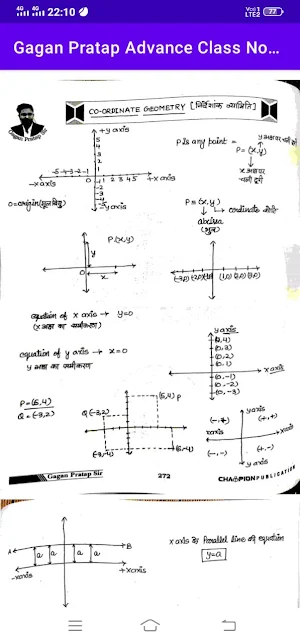 22:10
Vo) 1
LTE2
77
Gagan Pratap Advance Class No...
CO-ORDINATE GEOMETRY [निर्देशांक ज्यामिति]
Gagan Pratap Sir
+y axis
5
4
3
2
1
-5 -4 -3 -2 -1
0
1 2 3 4 5
+x axis
-x axis
-1
-2
-3
-4
-5
-y axis
O = origin (मूल बिंदु)
P is any point =
P = (x,y)
P = (x,y)
ordinate
abscissa
(भुज)
P(x,y)
y
0
x
(-3,0) (-2,0) (-1,0) (1,0) (2,0) (3,0)
equation of x axis → y=0
(x अक्ष का समीकरण)
equation of y axis → x=0
y अक्ष का समीकरण
y axis
(0,4)
(0,3)
(0,2)
(0,1)
x axis
(0,-1)
(0,-2)
(0,-3)
P = (5,4)
Q = (-3,2)
Q(-3,2)
(5,4) P
(-3,-4)
(5,-4)
y axis
(-,+)
(+,+)
x axis
x axis
(-,-)
(+,-)
y axis
Gagan Pratap Sir
272
CHAMPION PUBLICATION
A
B
a a a a
-x axis
+x axis
x axis के Parallel line की equation
y=a